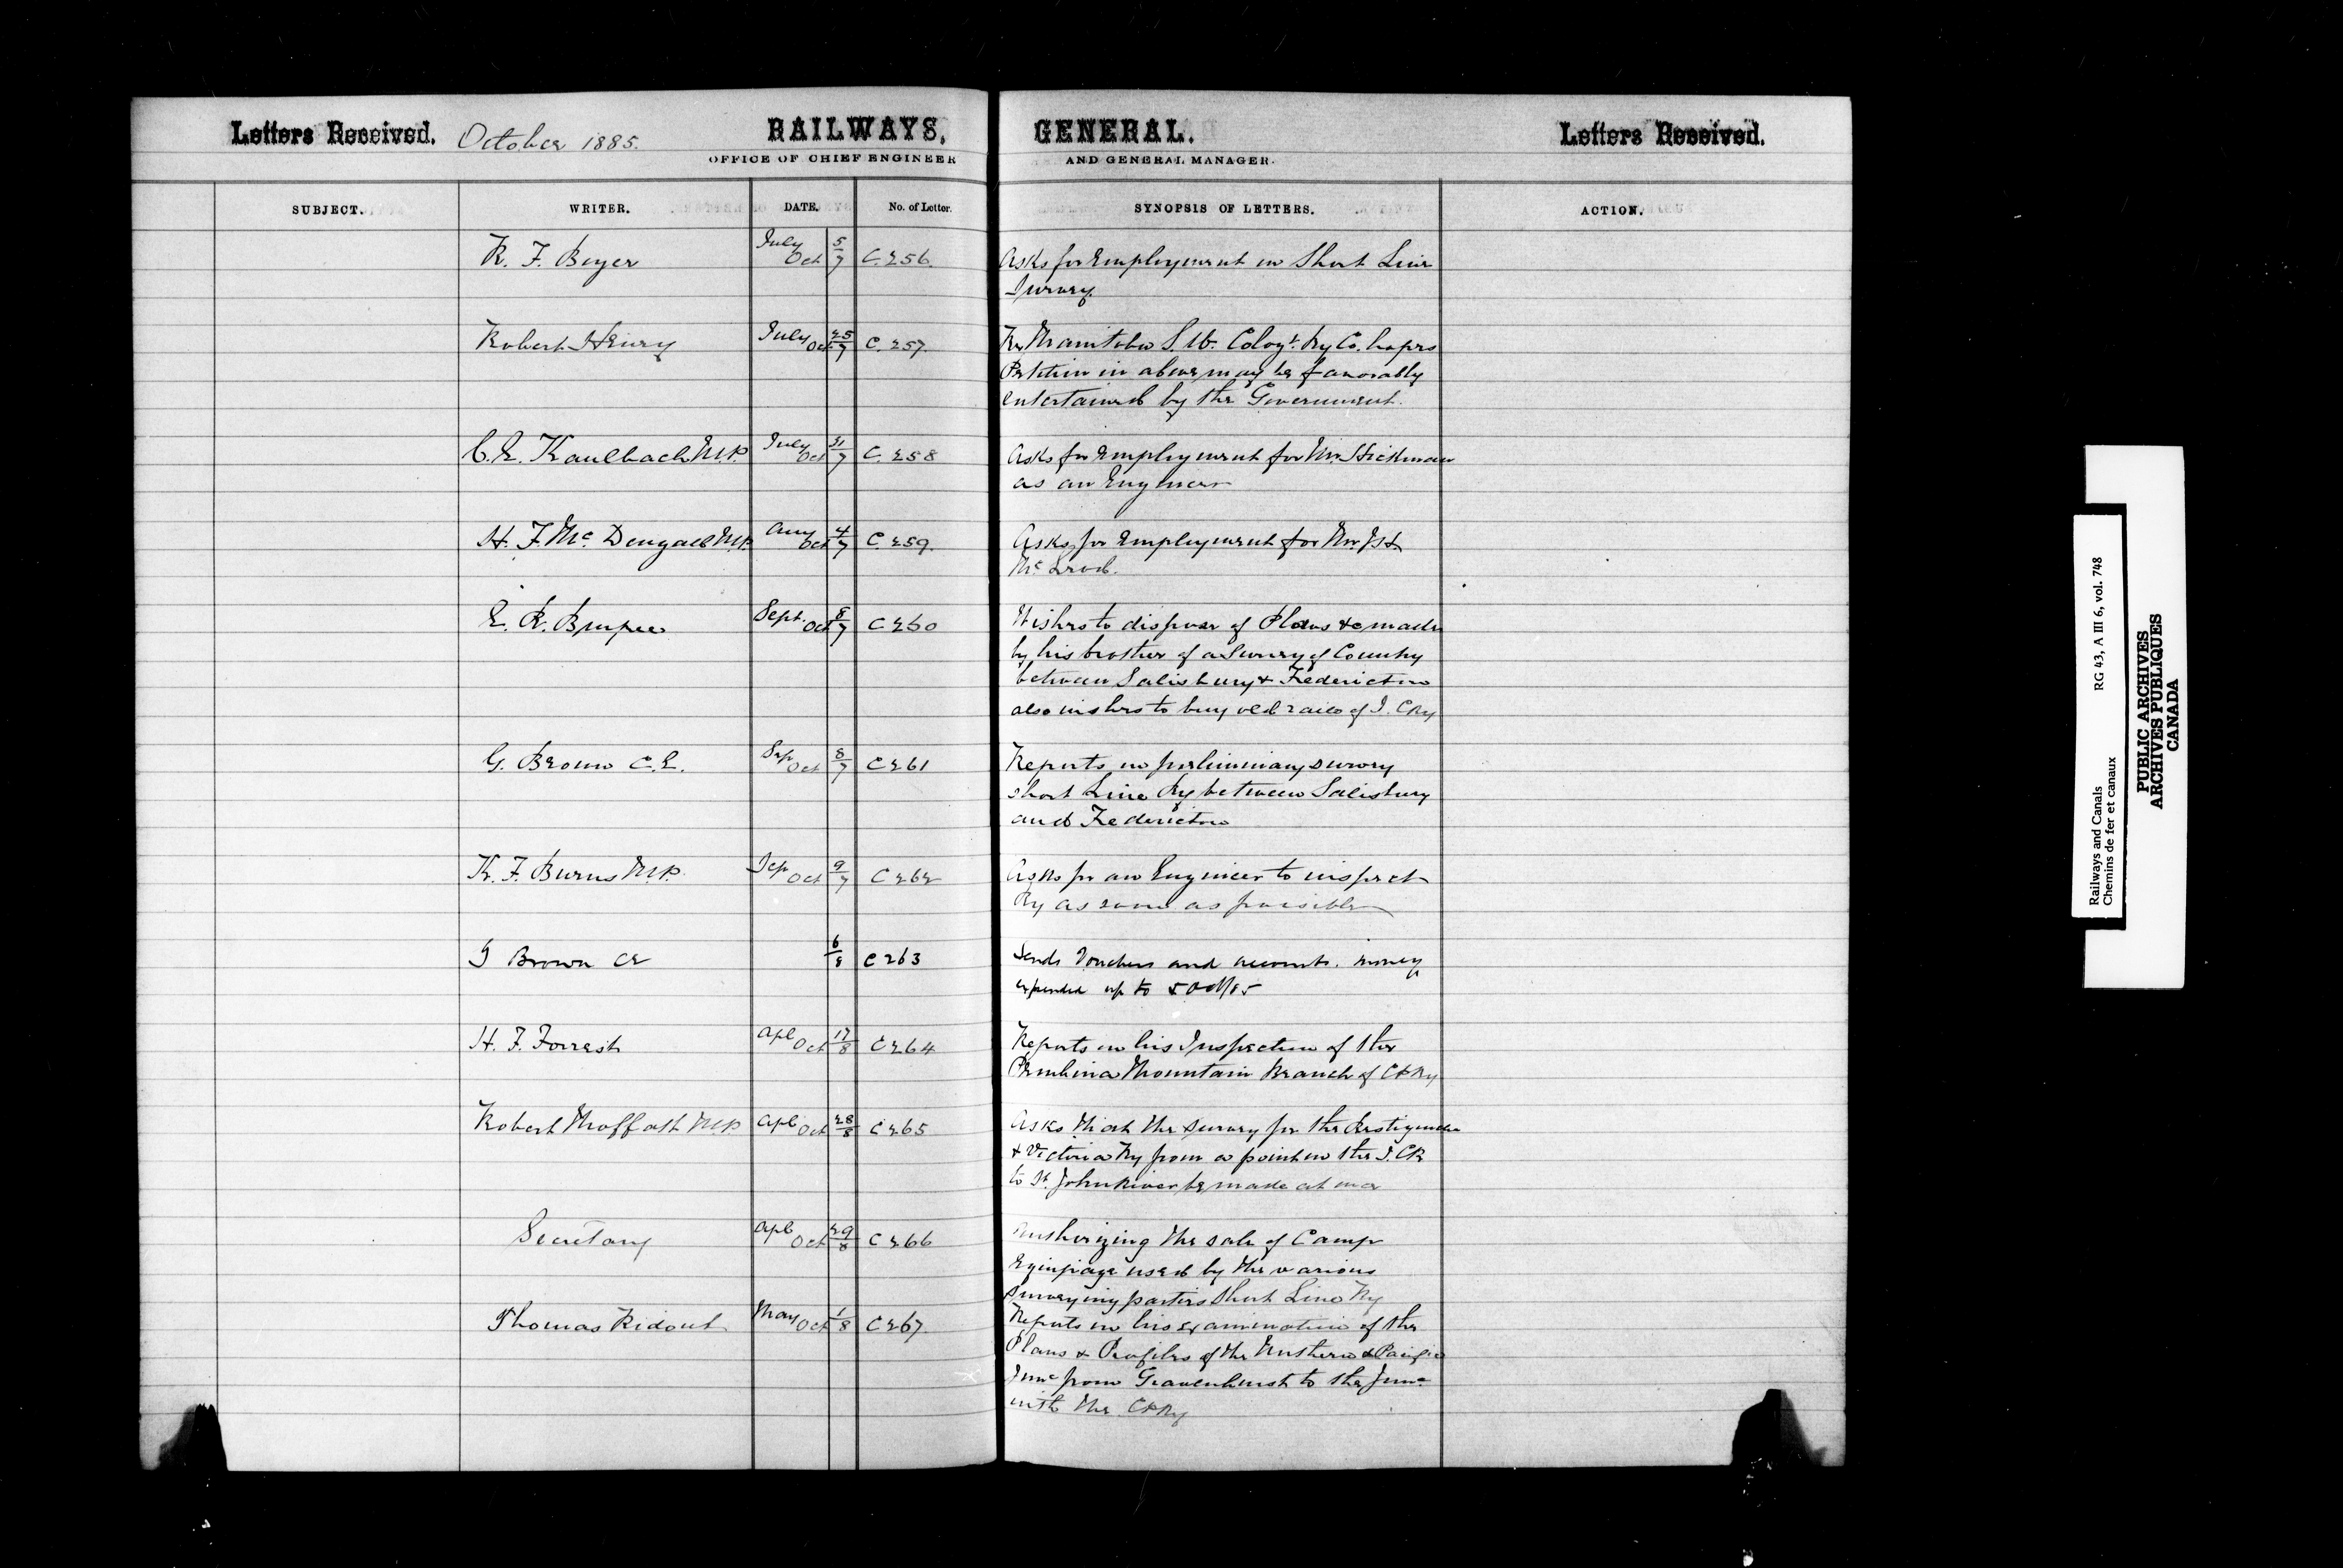 Letters Received. October 1885. RAILWAYS, GENERAL. Letters Received.
OFFICE OF CHIEF ENGINEER AND GENERAL MANAGER.
SUBJECT. WRITER. DATE. No. of Letter. SYNOPSIS OF LETTERS. ACTION.
R. F. Boyer July 5 Oct 7 C. 256. Asks for Employment on Short Line
Survey.
Robert Henry July 25 Oct 7 C. 257. Re Manitoba S. W. Coloyt. Ry Co. hopes
Petition in above may be favorably
entertained by the Government.
C. E. Kaulback M.P. July 31 Oct 7 C. 258 Asks for Employment for Mr. Hickman
as an Engineer
H. F. McDougall M.P. Aug 4 Oct 7 C. 259. Asks for Employment for Mr.
McLeod.
E. R. Burpee Sept. 8 Oct 7 C 260 Wishes to dispose of Plans &c made
by his brother of a Survey of Country
between Salisbury & Fredericton
also wishes to buy old rails of I. C Ry
G. Brown C.E. Sep 8 Oct 7 C 261 Reports on preliminary survey
short Line Ry between Salisbury
and Fredericton
K. F. Burns M.P. Sep 9 Oct 7 C 262 Asks for an Engineer to inspect
Ry as soon as possible
G Brown CE 6 8 C 263 Sends Vouchers and accounts. money
expended up to 5 Oct/85
H. F. Forrest Apl 17 Oct 8 C 264 Reports on his Inspection of the
Pembina Mountain Branch of CPRy
Robert Moffatt MP Apl 28 Oct 8 C 265 Asks that the survey for the Restigouche
& Victoria Ry from a point on the I. CR
to St. John River be made at once
Secretary Apl 29 Oct 8 C 266 Authorizing the sale of Camp
Equipage used by the various
surveying parties Short Line Ry
Thomas Ridout May 1 Oct 8 C 267. Reports on his examination of the
Plans & Profiles of the Northern & Pacific
Junc from Gravenhurst to the Junc
with the CPRy
Railways and Canals RG 43, A III 6, vol. 748
Chemins de fer et canaux
PUBLIC ARCHIVES
ARCHIVES PUBLIQUES
CANADA